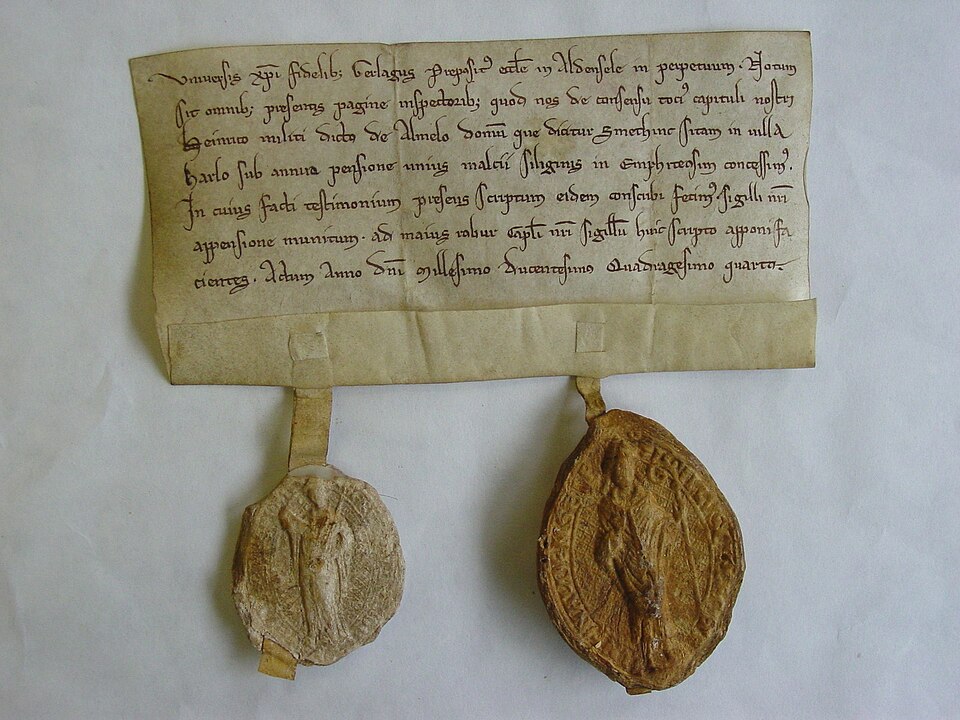 Universis xpi fidelib; Gerlagus Preposit9 eccle in Aldensele in perpetuum. Notum
sit omnib; presentis pagine inspectorib; quod nos de consensu toci9 capituli nostri
Heinrico militi dicto de Almelo domum que dicitur Smethinc sitam in villa
Harlo sub annua pensione unius malcii siliginis in Emphiteosim concessim9.
In cuius facti testimonium presens scriptum eidem conscribi fecim9 sigilli nri
appensione munitum. ad maius robur Capli nri sigillum huic scripto apponi fa
cientes. Actum Anno dni Millesimo Ducentesimo Quadragesimo quarto.